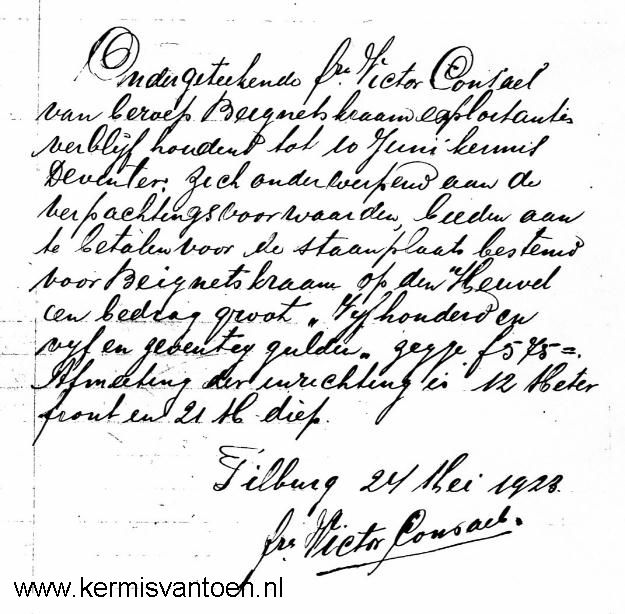 Ondergeteekende fre Victor Consael
van beroep Beignetskraam exploitante
verblijf houdend tot 10 Juni kermis
Deventer. zich onderwerpend aan de
verpachtingsvoorwaarden, bieden aan
te betalen voor de staanplaats bestemd
voor Beignetskraam op den Heuvel
een bedrag groot „Vijfhonderd en
vijf en zeventig gulden„ zegge f 575=.
Afmeeting der inrichting is 12 Meter
front en 21 M diep.
Tilburg 24 Mei 1923.
fre Victor Consael.
www.kermisvantoen.nl